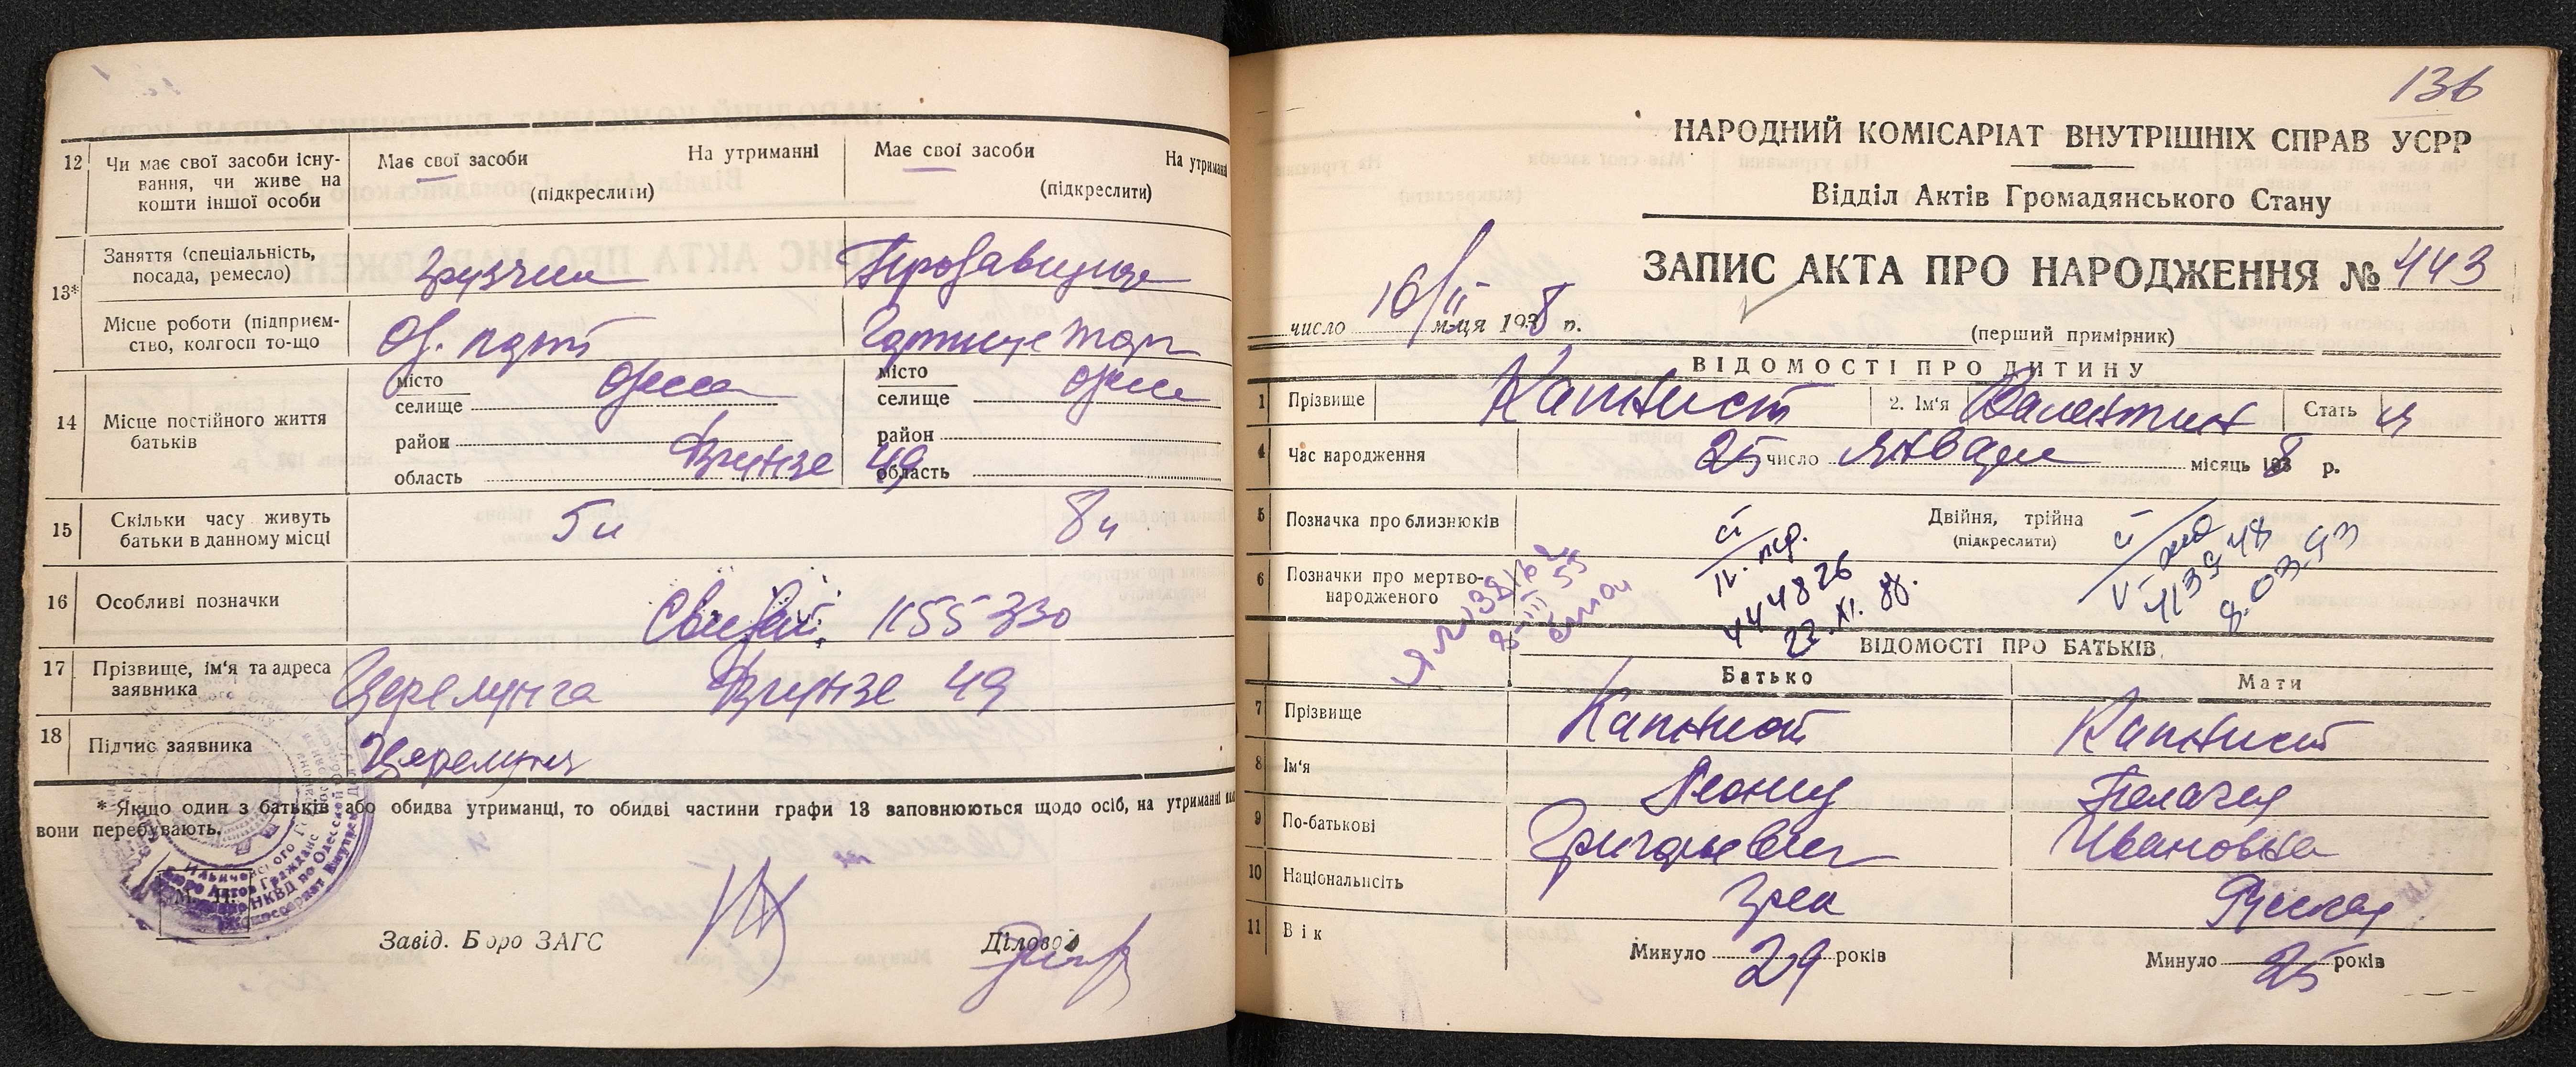 12 Чи має свої засоби існу-
вання, чи живе на
кошти іншої особи
Має свої засоби На утриманні
(підкреслити)
Має свої засоби На утриманні
(підкреслити)
13*
Заняття (спеціальність,
посада, ремесло)
грузчик
Продавщица
Місце роботи (підприєм-
ство, колгосп то-що
Од. порт
14 Місце постійного життя
батьків
місто Одесса
селище
район
область Фрунзе 49
місто Одесса
селище
район
область
15 Скільки часу живуть
батьки в данному місці
16 Особливі позначки
17 Прізвище, ім'я та адреса
заявника
Церемунга Фрунзе 49
18 Підпис заявника
* Якщо один з батьків або обидва утриманці, то обидві частини графи 13 заповнюються щодо осіб, на утриманні
вони перебувають.
М. П.
Завід. Бюро ЗАГС
Діловод
136
НАРОДНИЙ КОМІСАРІАТ ВНУТРІШНІХ СПРАВ УСРР
Відділ Актів Громадянського Стану
ЗАПИС АКТА ПРО НАРОДЖЕННЯ № 443
число 16/II м-ця 1938 р.
(перший примірник)
ВІДОМОСТІ ПРО ДИТИНУ
1 Прізвище Капнист 2. Ім'я Валентин Стать м
4 Час народження 25 число Января місяць 1938 р.
5 Позначка про близнюків
Двійня, трійна
(підкреслити)
6 Позначки про мертво-
народженого
444826
22.XI.88.
413948
9.03.93
ВІДОМОСТІ ПРО БАТЬКІВ
Батько Мати
7 Прізвище Капнист Капнист
8 Ім'я Леонид Пелагея
9 По-батькові Григорьевич Ивановна
10 Національність Грек Русская
11 Вік Минуло 29 років Минуло 25 років